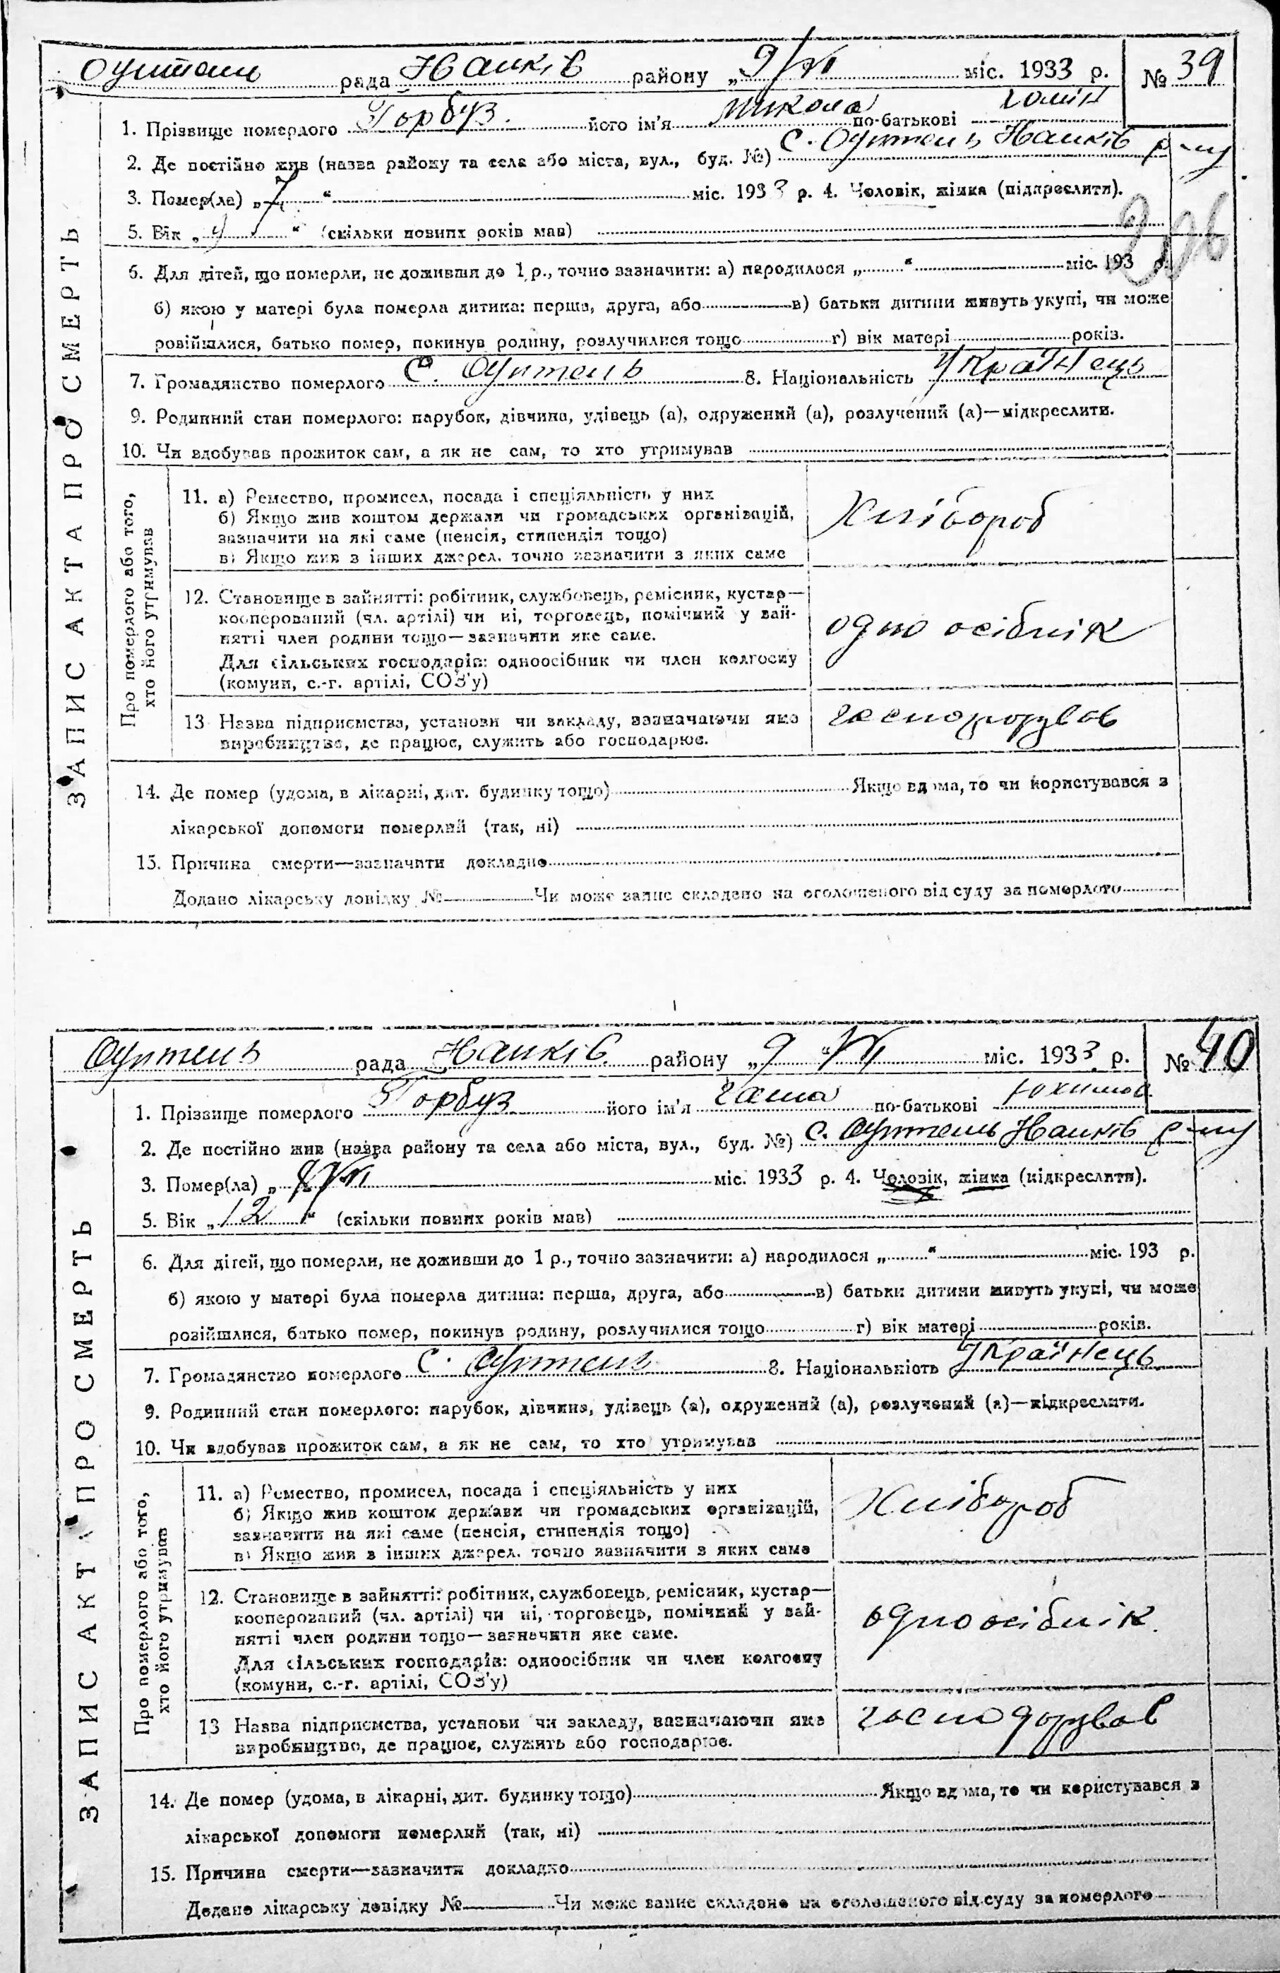 рада району „9/VI міс. 1933 р. № 39
1. Прізвище померлого Горбуз. його ім'я Микола по-батькові
2. Де постійно жив (назва району та села або міста, вул., буд. №) с.
3. Помер(ла) „7 “ міс. 1933 р. 4. Чоловік, жінка (підкреслити).
5. Вік „ “ (скільки повних років мав)
206
6. Для дітей, що померли, не доживши до 1 р., точно зазначити: а) народилося „ “ міс. 193 р.
б) якою у матері була померла дитина: перша, друга, або в) батьки дитини живуть укупі, чи може
розійшлися, батько помер, покинув родину, розлучилися тощо г) вік матері років.
7. Громадянство померлого С. 8. Національність Українець
9. Родинний стан померлого: парубок, дівчина, удівець (а), одружений (а), розлучений (а)—підкреслити.
10. Чи здобував прожиток сам, а як не сам, то хто утримував
ЗАПИС АКТА ПРО СМЕРТЬ
Про померлого або того, хто його утримував
11. а) Ремество, промисел, посада і спеціяльність у них
б) Якщо жив коштом держави чи громадських організацій,
зазначити на які саме (пенсія, стипендія тощо)
в) Якщо жив з інших джерел, точно зазначити з яких саме
Хлібороб
12. Становище в зайнятті: робітник, службовець, ремісник, кустар—
кооперований (чл. артілі) чи ні, торговець, помічний у зай-
нятті член родини тощо—зазначити яке саме.
Для сільських господарів: одноосібник чи член колгоспу
(комуни, с.-г. артілі, СОЗ'у)
одноосібнік
13 Назва підприємства, установи чи закладу, зазначаючи яке
виробництво, де працює, служить або господарює.
14. Де помер (удома, в лікарні, дит. будинку тощо) Якщо вдома, то чи користувався з
лікарської допомоги померлий (так, ні)
15. Причина смерти—зазначити докладно
Додано лікарську довідку № Чи може запис складено на оголошеного від суду за померлого
рада району „9 “ VI міс. 1933 р. № 40
1. Прізвище померлого Горбуз його ім'я по-батькові Юхимов
2. Де постійно жив (назва району та села або міста, вул., буд. №) с.
3. Помер(ла) „ міс. 1933 р. 4. Чоловік, жінка (підкреслити).
5. Вік „12 “ (скільки повних років мав)
6. Для дітей, що померли, не доживши до 1 р., точно зазначити: а) народилося „ “ міс. 193 р.
б) якою у матері була померла дитина: перша, друга, або в) батьки дитини живуть укупі, чи може
розійшлися, батько помер, покинув родину, розлучилися тощо г) вік матері років.
7. Громадянство померлого С. 8. Національність Українець
9. Родинний стан померлого: парубок, дівчина, удівець (а), одружений (а), розлучений (а)—підкреслити.
10. Чи здобував прожиток сам, а як не сам, то хто утримував
ЗАПИС АКТА ПРО СМЕРТЬ
Про померлого або того, хто його утримував
11. а) Ремество, промисел, посада і спеціяльність у них
б) Якщо жив коштом держави чи громадських організацій,
зазначити на які саме (пенсія, стипендія тощо)
в) Якщо жив з інших джерел, точно зазначити з яких саме
Хлібороб
12. Становище в зайнятті: робітник, службовець, ремісник, кустар—
кооперований (чл. артілі) чи ні, торговець, помічний у зай-
нятті член родини тощо—зазначити яке саме.
Для сільських господарів: одноосібник чи член колгоспу
(комуни, с.-г. артілі, СОЗ'у)
одноосібнік
13 Назва підприємства, установи чи закладу, зазначаючи яке
виробництво, де працює, служить або господарює.
14. Де помер (удома, в лікарні, дит. будинку тощо) Якщо вдома, то чи користувався з
лікарської допомоги померлий (так, ні)
15. Причина смерти—зазначити докладно
Додано лікарську довідку № Чи може запис складено на оголошеного від суду за померлого